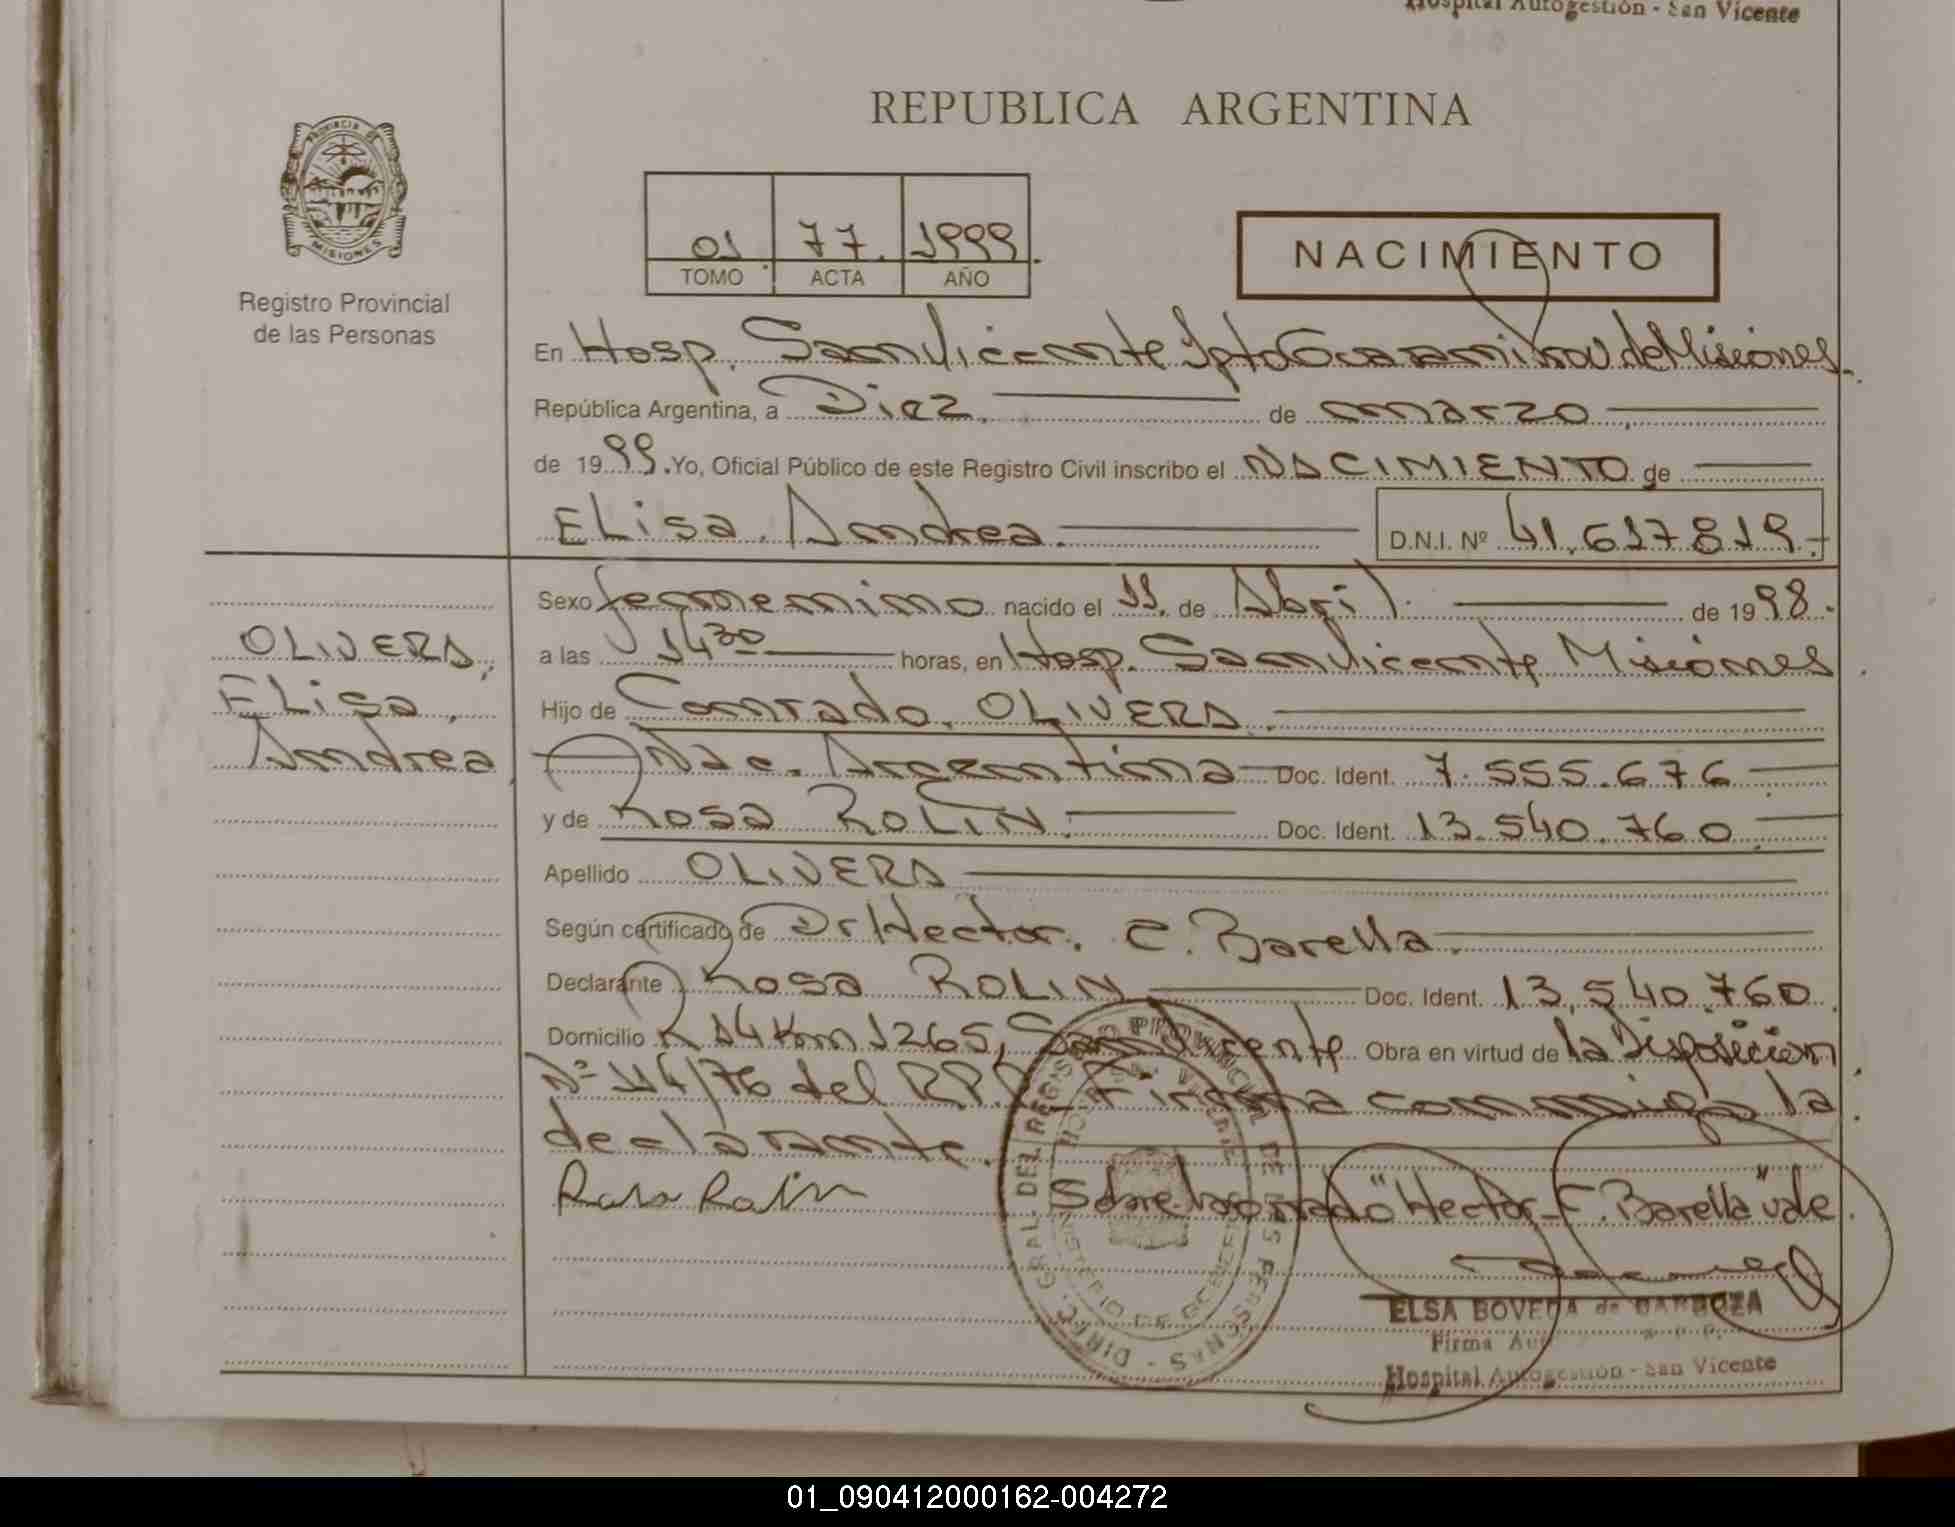 Hospital Autogestión - San Vicente
REPUBLICA ARGENTINA
PROVINCIA DE
MISIONES
Registro Provincial
de las Personas
01 77. 1999.
TOMO ACTA AÑO
NACIMIENTO
En Hosp. San Vicente Dpto Guaraní Prov. de Misiones.
República Argentina, a Diez. de marzo,
de 1999. Yo, Oficial Público de este Registro Civil inscribo el NACIMIENTO de
ELisa Andrea.
D.N.I. Nº 41.617819.-
OLIVERA,
ELisa,
Andrea
Sexo femenino nacido el 11. de Abril. de 1998.
a las 14 30 horas, en Hosp. San Vicente Misiones
Hijo de Conrado OLIVERA.
Nac. Argentina Doc. Ident. 7.555.676
y de Rosa ROLIN. Doc. Ident. 13.540.760
Apellido OLIVERA
Según certificado de Dr Hector. C. Barella.
Declarante Rosa ROLIN Doc. Ident. 13.540.760
Domicilio R 14 Km 1265, San Vicente Obra en virtud de la Disposición
Nº 114/76 del R.P.P. Firma conmigo la
declarante.
Rosa Rolin
Sobre borrado "Hector - C. Barella" vale.
DIREC. GRAL. DEL REGISTRO PROVINCIAL DE LAS PERSONAS
MINISTERIO DE GOBIERNO
ELSA BOVEDA de BARBOZA
Firma
Hospital Autogestión - San Vicente
01_090412000162-004272